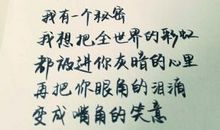 我有一个秘密
我想把全世界的彩虹
都融进你灰暗的心里
再把你眼角的泪滴
变成嘴角的笑意